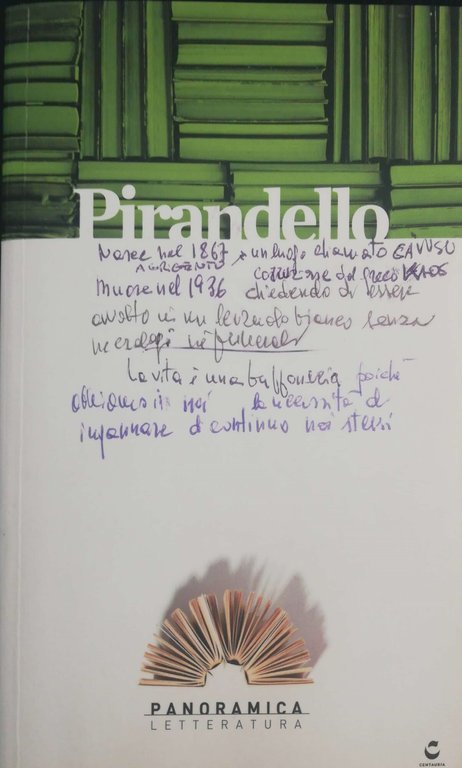 Pirandello
Nasce nel 1867, in un luogo chiamato CAVUSU
AGRIGENTO
corruzione del greco KAOS
Muore nel 1936 chiedendo di essere
avvolto in un lenzuolo bianco senza
necrologi nè funerali
La vita è una buffoneria poichè
abbiamo in noi la necessità di
ingannare di continuo noi stessi
PANORAMICA
LETTERATURA
CENTAURIA